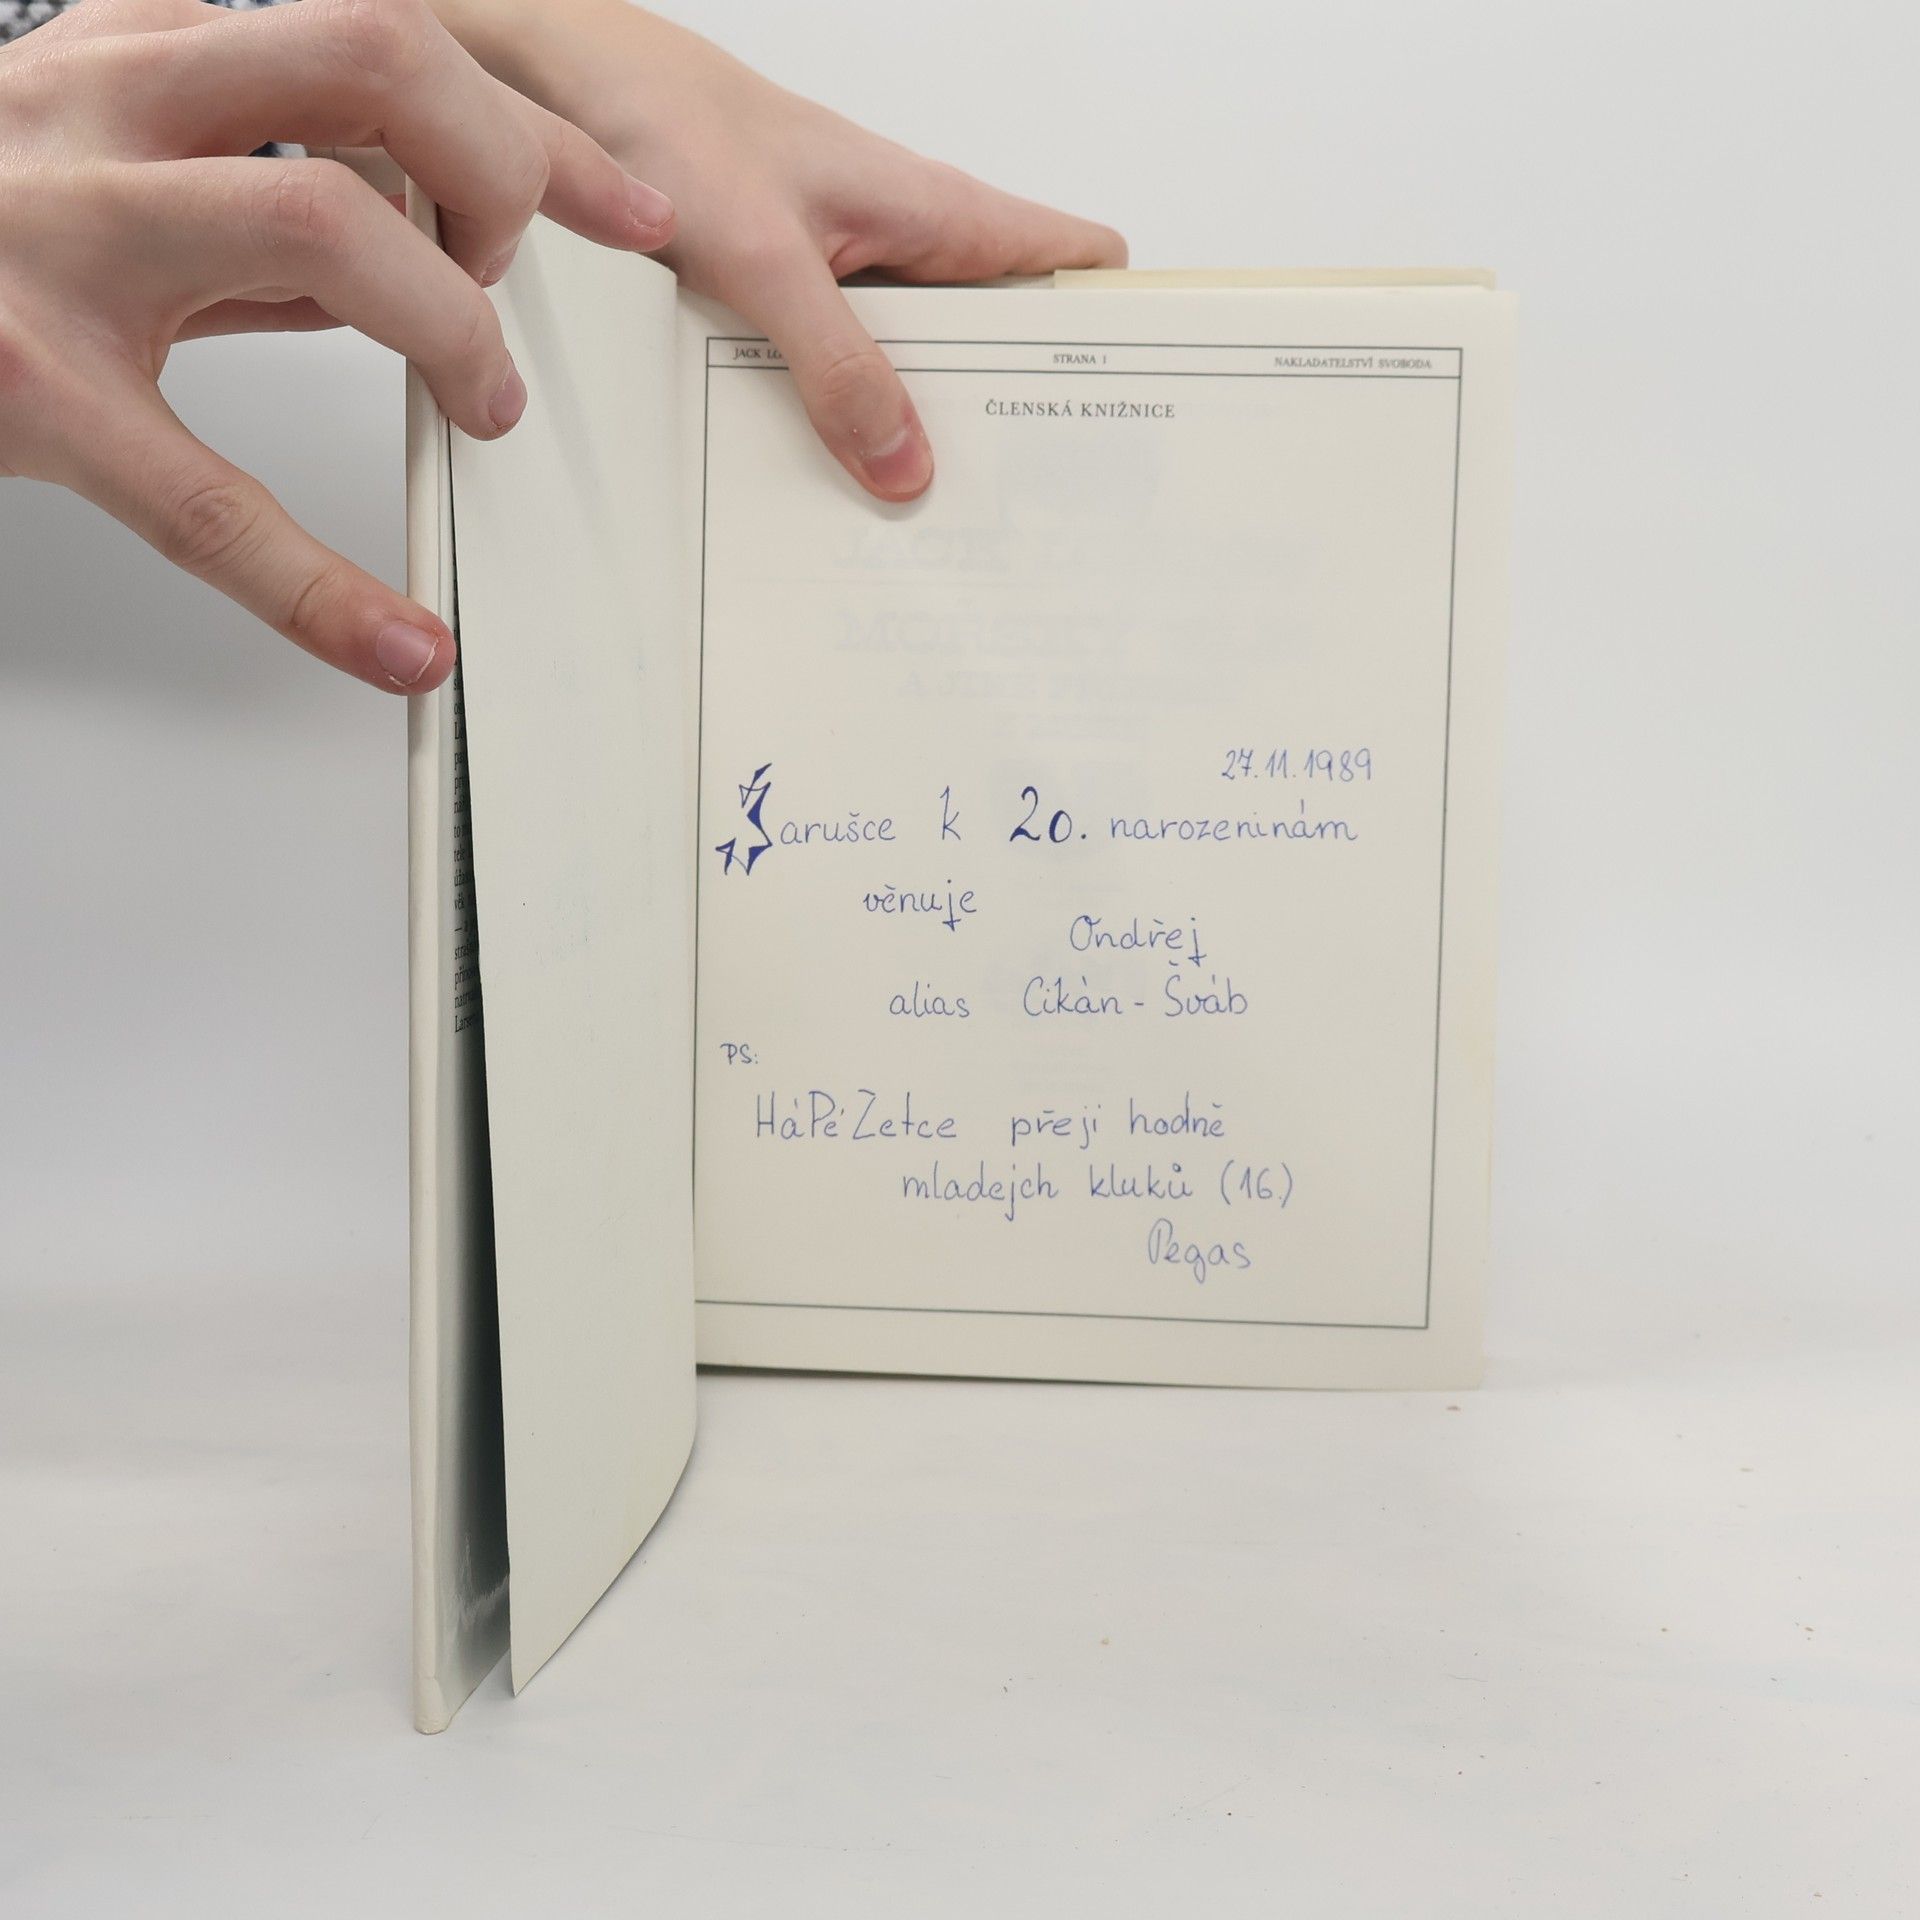 JACK
STRANA 1
NAKLADATELSTVÍ SVOBODA
ČLENSKÁ KNIŽNICE
27.11.1989
Šarušce k 20. narozeninám
věnuje
Ondřej
alias Cikán - Šváb
PS:
HáPéZetce přeji hodně
mladejch kluků (16.)
Pegas